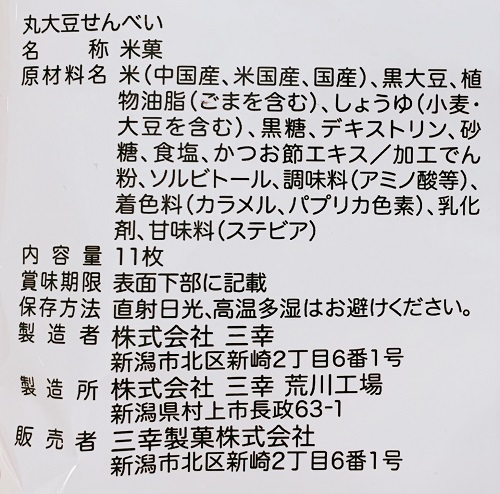 丸大豆せんべい
名称 米菓
原材料名 米（中国産、米国産、国産）、黒大豆、植
物油脂（ごまを含む）、しょうゆ（小麦・
大豆を含む）、黒糖、デキストリン、砂
糖、食塩、かつお節エキス／加工でん
粉、ソルビトール、調味料（アミノ酸等）、
着色料（カラメル、パプリカ色素）、乳化
剤、甘味料（ステビア）
内容量 11枚
賞味期限 表面下部に記載
保存方法 直射日光、高温多湿はお避けください。
製造者 株式会社 三幸
新潟市北区新崎2丁目6番1号
製造所 株式会社 三幸 荒川工場
新潟県村上市長政63-1
販売者 三幸製菓株式会社
新潟市北区新崎2丁目6番1号